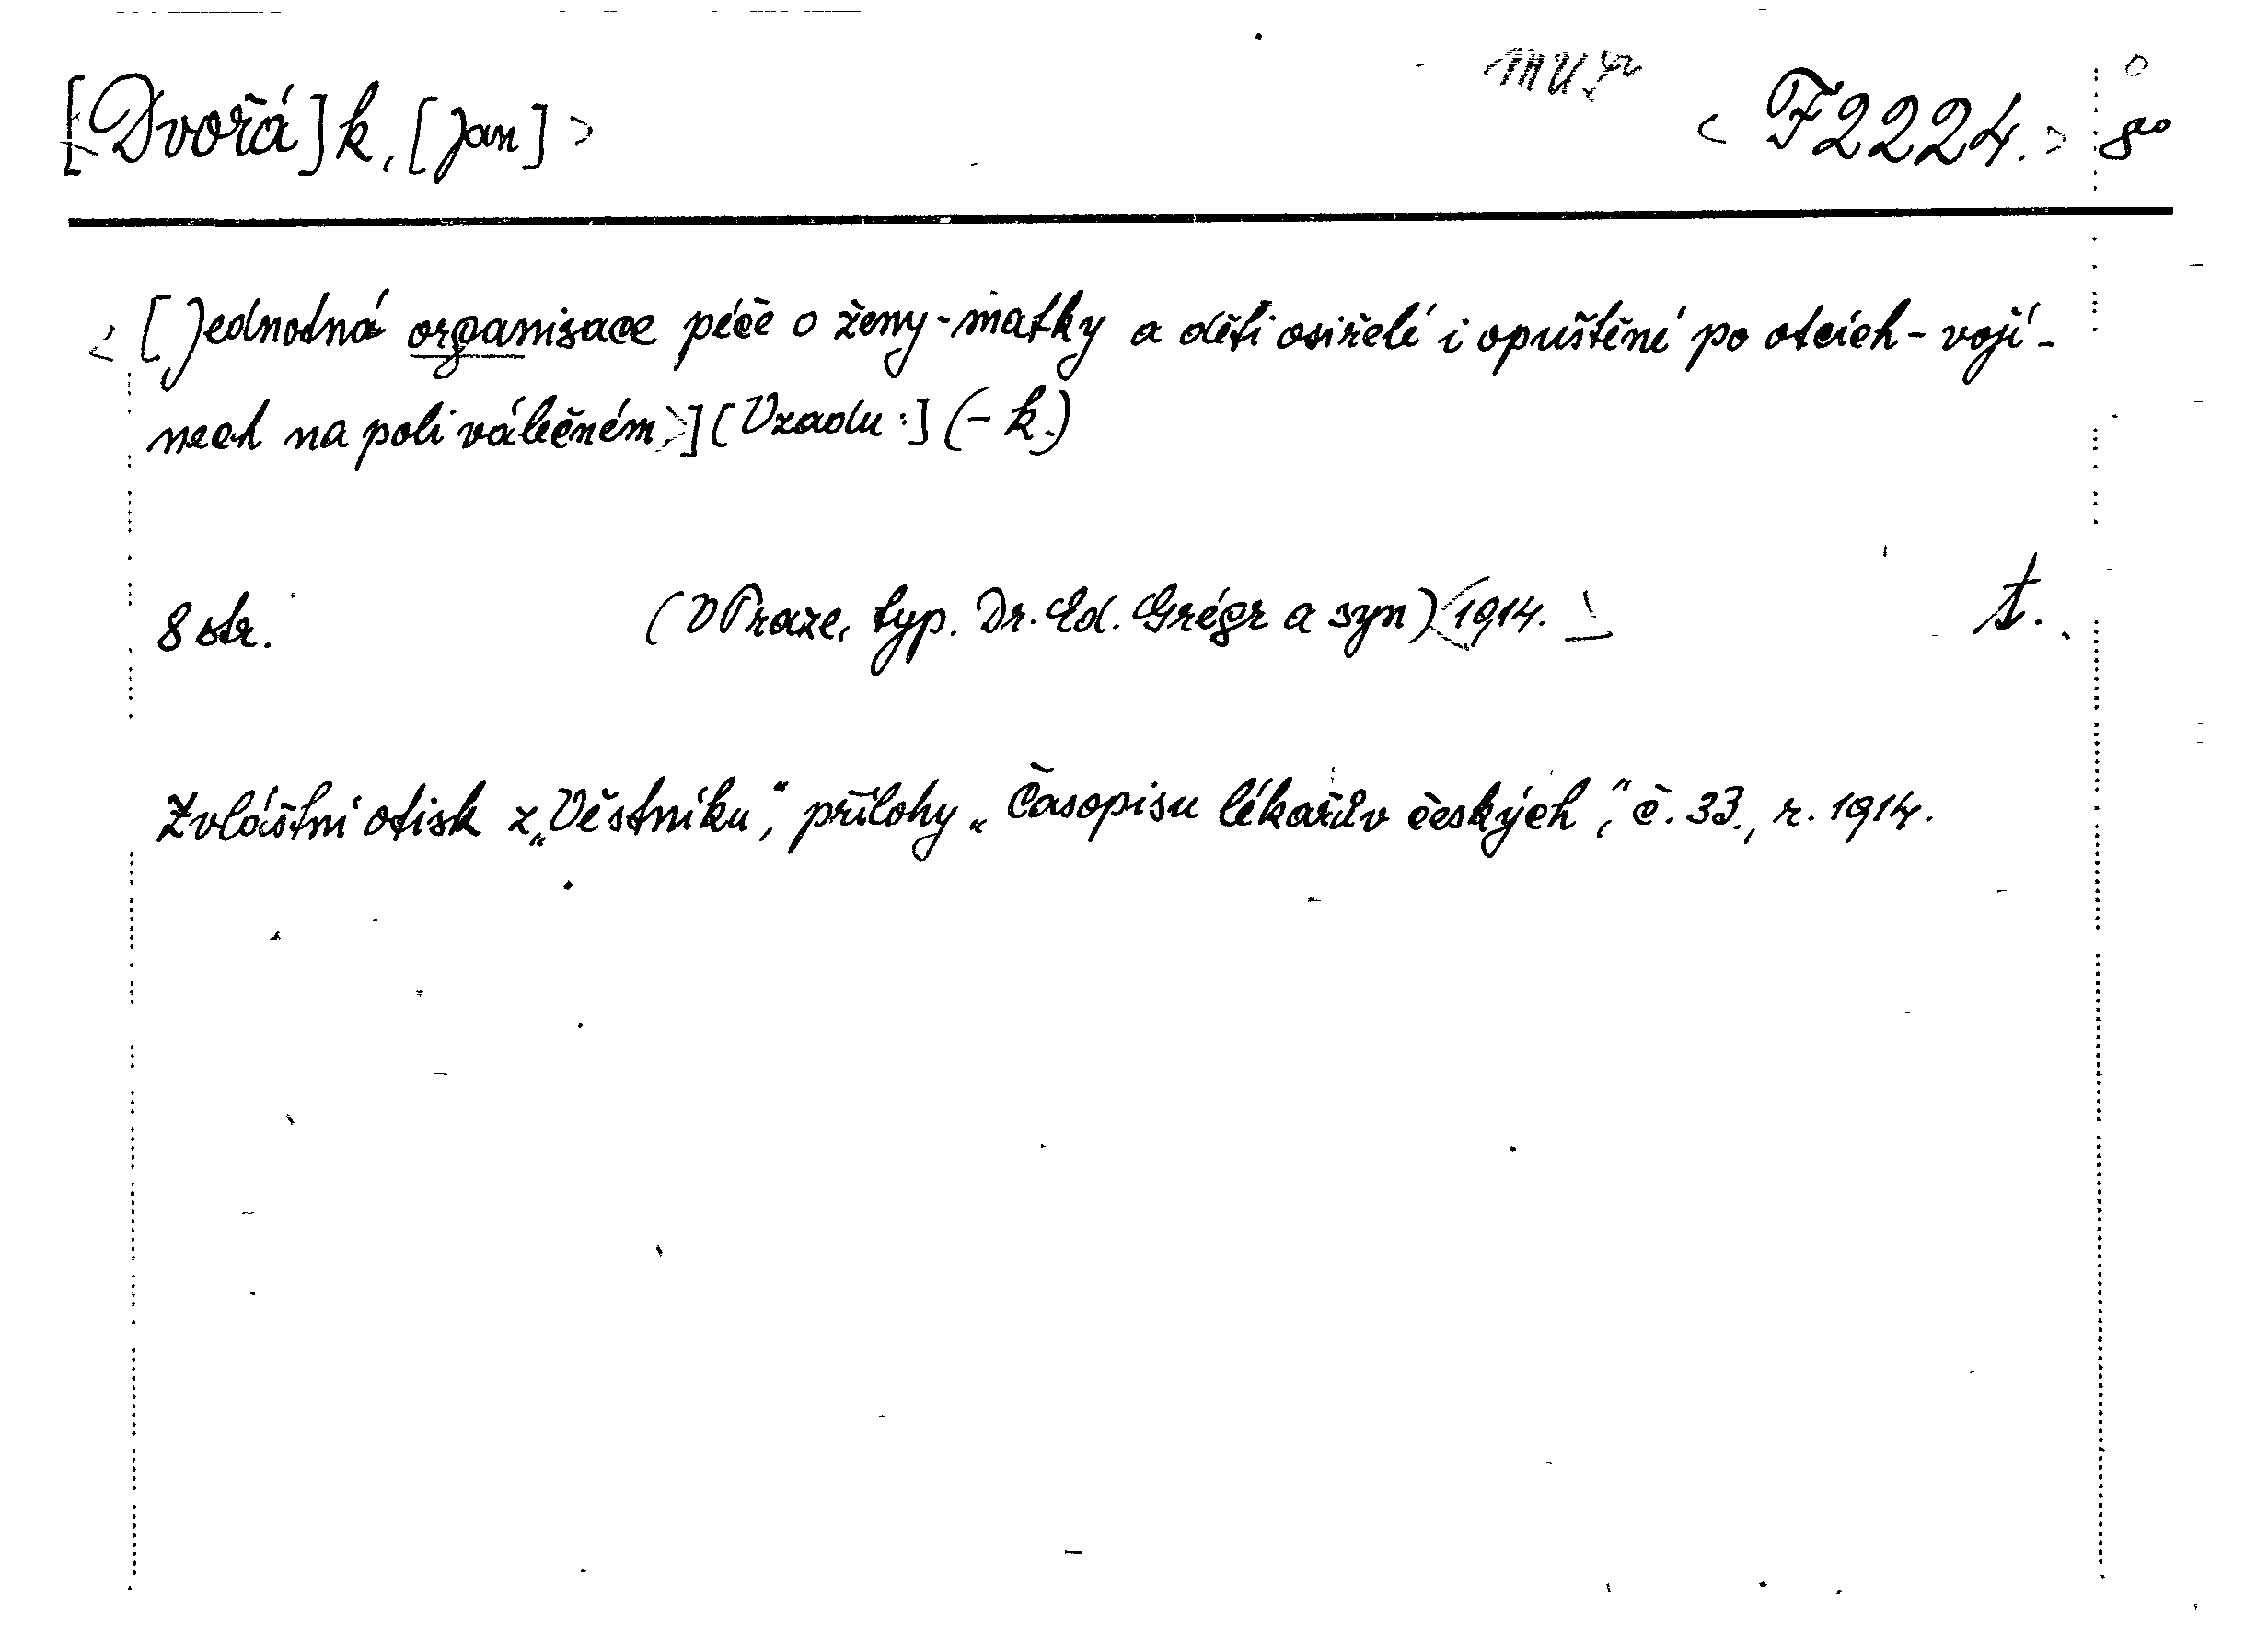 [Dvořá]k, [Jan] > < F 2224. > 8°
< [Jednotná organisace péče o ženy-matky a děti osiřelé i opuštěné po otcích-vojí-
nech na poli válečném>] [Vzadu:] (-k.)
8 str. (V Praze, typ. Dr. Ed. Grégr a syn) <1914. > t.
Zvláštní otisk z „Věstníku“, přílohy „Časopisu lékařův českých“, č. 33., r. 1914.